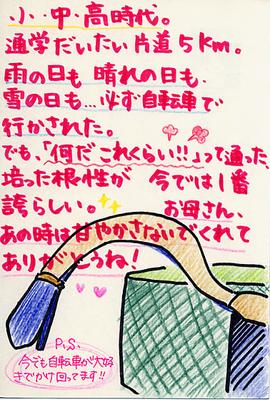 小・中・高時代。
通学だいたい片道5km。
雨の日も 晴れの日も、
雪の日も…必ず自転車で
行かされた。
でも、「何だこれくらい!!」って通った、
培った根性が 今では1番
誇らしい。 お母さん、
あの時は甘やかさないでくれて
ありがとうね!
P.S.
今でも自転車が大好
きでかけ回ってます!!